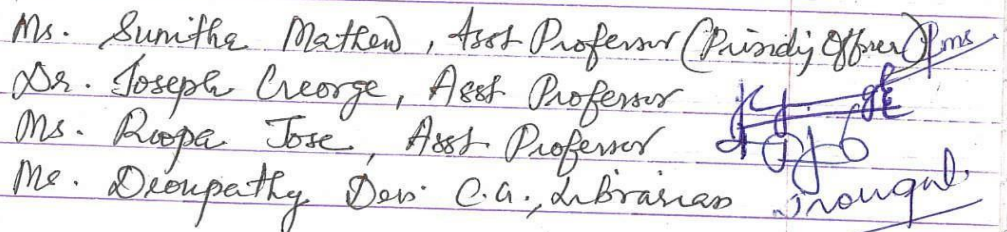 Ms. Sunitha Mathew, Asst Professor (Presiding Officer)
Dr. Joseph George, Asst Professor
Ms. Roopa Jose, Asst Professor
Ms. Droupathy Devi C.G., Librarian